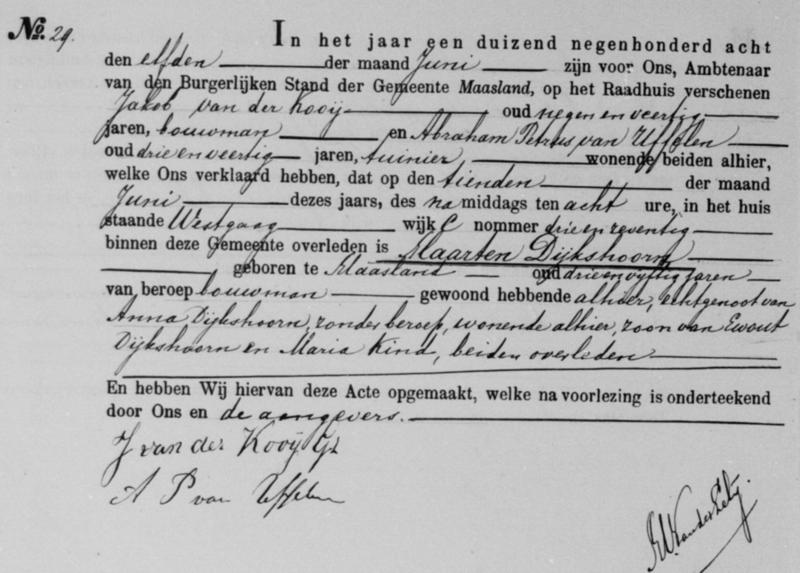 No. 29. In het jaar een duizend negenhonderd acht
den elfden der maand Juni zijn voor Ons, Ambtenaar
van den Burgerlijken Stand der Gemeente Maasland, op het Raadhuis verschenen
Jakob van der Kooij oud negen en veertig
jaren, bouwman en Abraham Petrus van Uffelen
oud drie en veertig jaren, tuinier wonende beiden alhier,
welke Ons verklaard hebben, dat op den tienden der maand
Juni dezes jaars, des na middags ten acht ure, in het huis
staande Westgaag wijk C nommer drie en zeventig
binnen deze Gemeente overleden is Maarten Dijkshoorn
geboren te Maasland oud drie en vyftig jaren
van beroep bouwman gewoond hebbende alhier, echtgenoot van
Anna Dijkshoorn, zonder beroep, wonende alhier, zoon van Ewout
Dijkshoorn en Maria Kind, beiden overleden
En hebben Wij hiervan deze Acte opgemaakt, welke na voorlezing is onderteekend
door Ons en de aangevers.
J van der Kooij Gz
A P van Uffelen